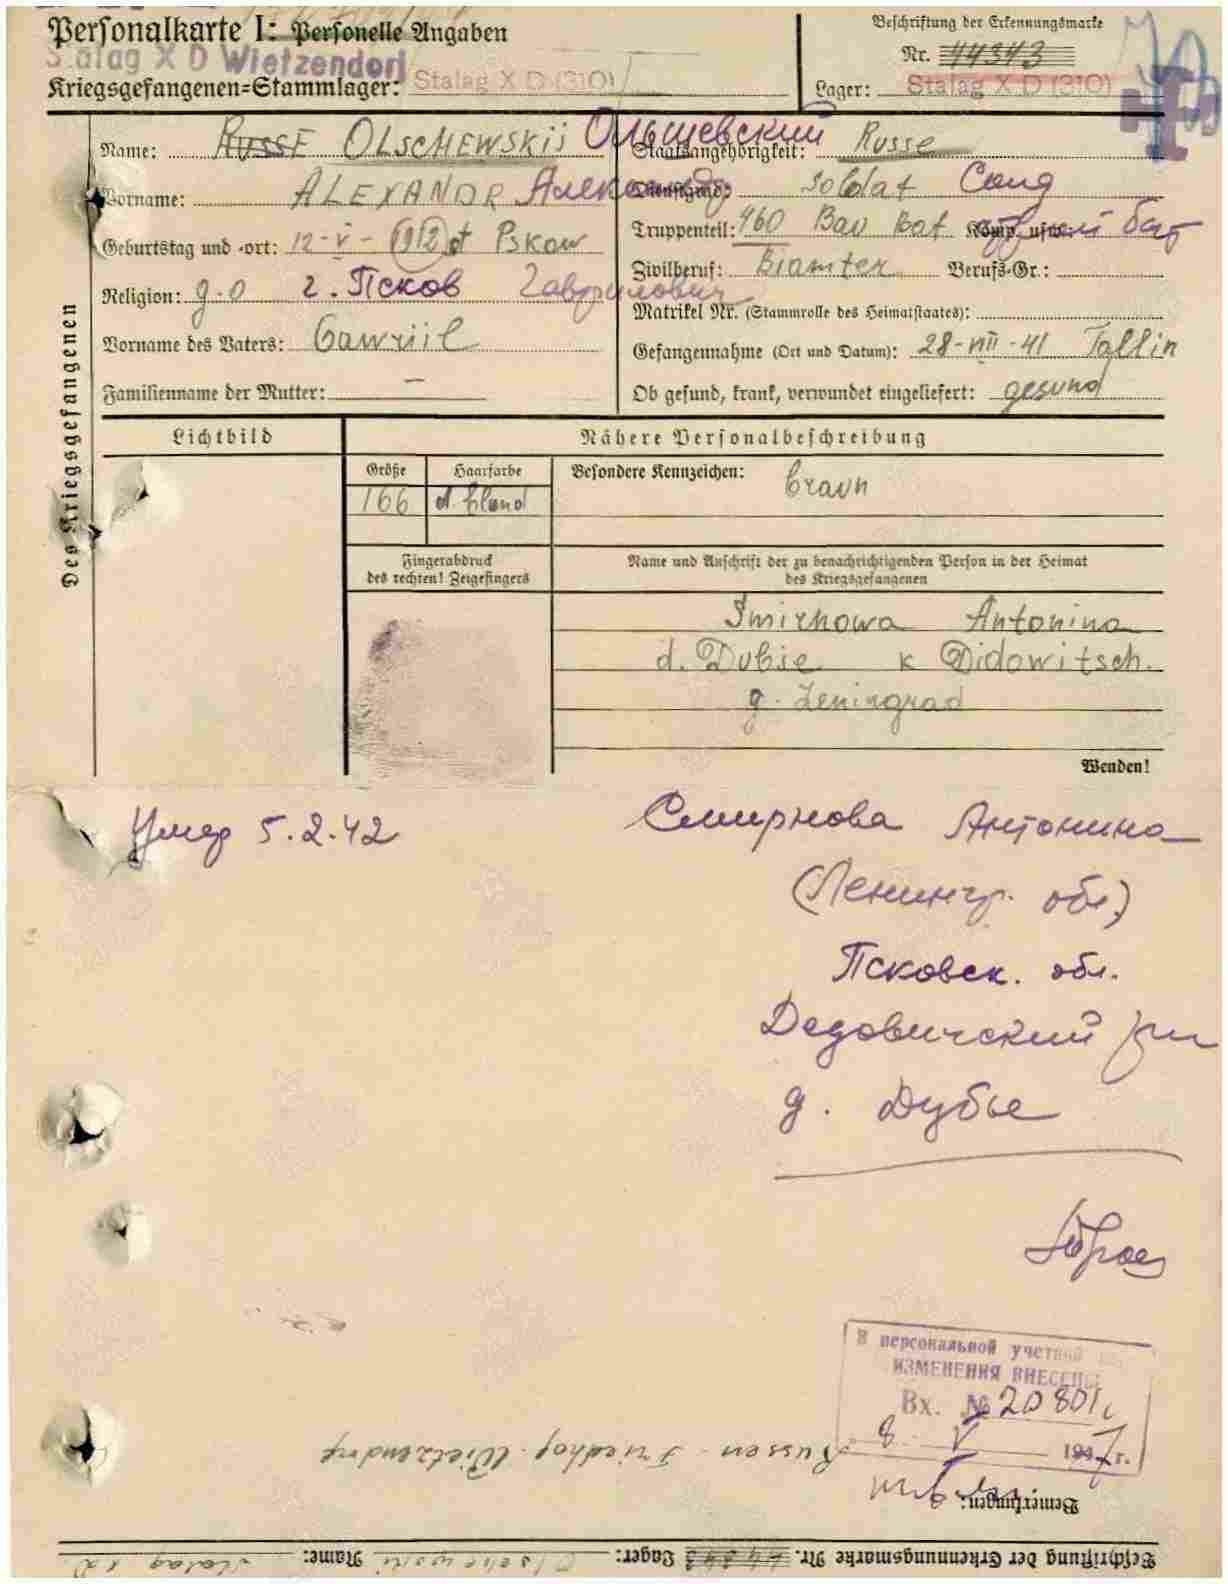 Personalkarte I: Personelle Angaben
Stalag X D Wietzendorf
Kriegsgefangenen=Stammlager: Stalag X D (310)
Beschriftung der Erkennungsmarke
Nr. 44343
Lager: Stalag X D (310)
Des Kriegsgefangenen
Name: Russe OLSCHEWSKIJ Ольшевский
Vorname: ALEXANDR Александр
Geburtstag und -ort: 12-V-1912 Pskow
Religion: g-o г. Псков Гаврилович
Vorname des Vaters: Gawriil
Familienname der Mutter: —
Staatsangehörigkeit: Russe
Dienstgrad: Soldat Солд
Truppenteil: 460 Bau Bat Komp. usw.: строй бат
Zivilberuf: Beamter Berufs-Gr.:
Matrikel Nr. (Stammrolle des Heimatstaates):
Gefangennahme (Ort und Datum): 28-VIII-41 Tallin
Ob gesund, krank, verwundet eingeliefert: gesund
Lichtbild
Nähere Personalbeschreibung
Größe
166
Haarfarbe
d. blond
Besondere Kennzeichen: braun
Fingerabdruck
des rechten! Zeigefingers
Name und Anschrift der zu benachrichtigenden Person in der Heimat
des Kriegsgefangenen
Smirnowa Antonina
d. Dubje k Didowitsch.
g. Leningrad
Wenden!
Умер 5.2.42
Смирнова Антонина
(Ленингр. обл.)
Псковск. обл.
Дедовичский
д. Дубье
В персональной учетной
ИЗМЕНЕНИЯ ВНЕСЕНЫ
Вх. № 20801
8. V 1947 г.
Bemerkungen:
Russen-Friedhof Wietzendorf
Beschriftung der Erkennungsmarke Nr. 44343 Lager: Name: